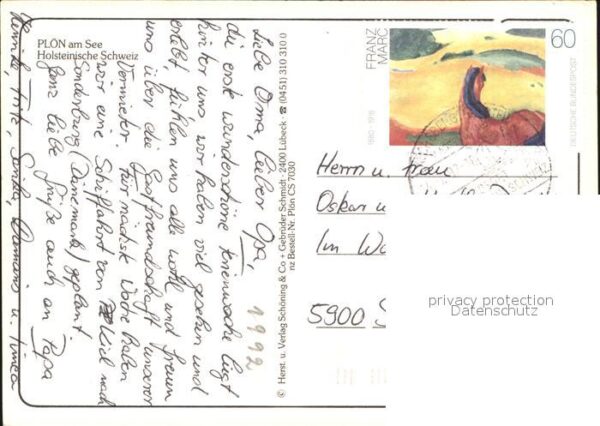 PLÖN am See
Holsteinische Schweiz
Liebe Oma, lieber Opa,
die erste wunderschöne Ferienwoche liegt
hinter uns wir haben viel gesehen und
erlebt, fühlen uns alle wohl und freuen
uns über die Gastfreundschaft unserer
Vermieter. Für nächste Woche haben
wir eine Schiffahrt von Kiel nach
Sonderburg (Dänemark) geplant.
Ganz liebe Grüße auch an Papa
u. Timea
1992
© Herst. u. Verlag Schöning & Co + Gebrüder Schmidt · 2400 Lübeck · ☎ (0451) 310 310 0
nz Bestell-Nr. Plön CS 7030
FRANZ
MARC
1880 - 1916
60
DEUTSCHE BUNDESPOST
Herrn u. Frau
Oskar u
Im Wa
5900 S
privacy protection
Datenschutz